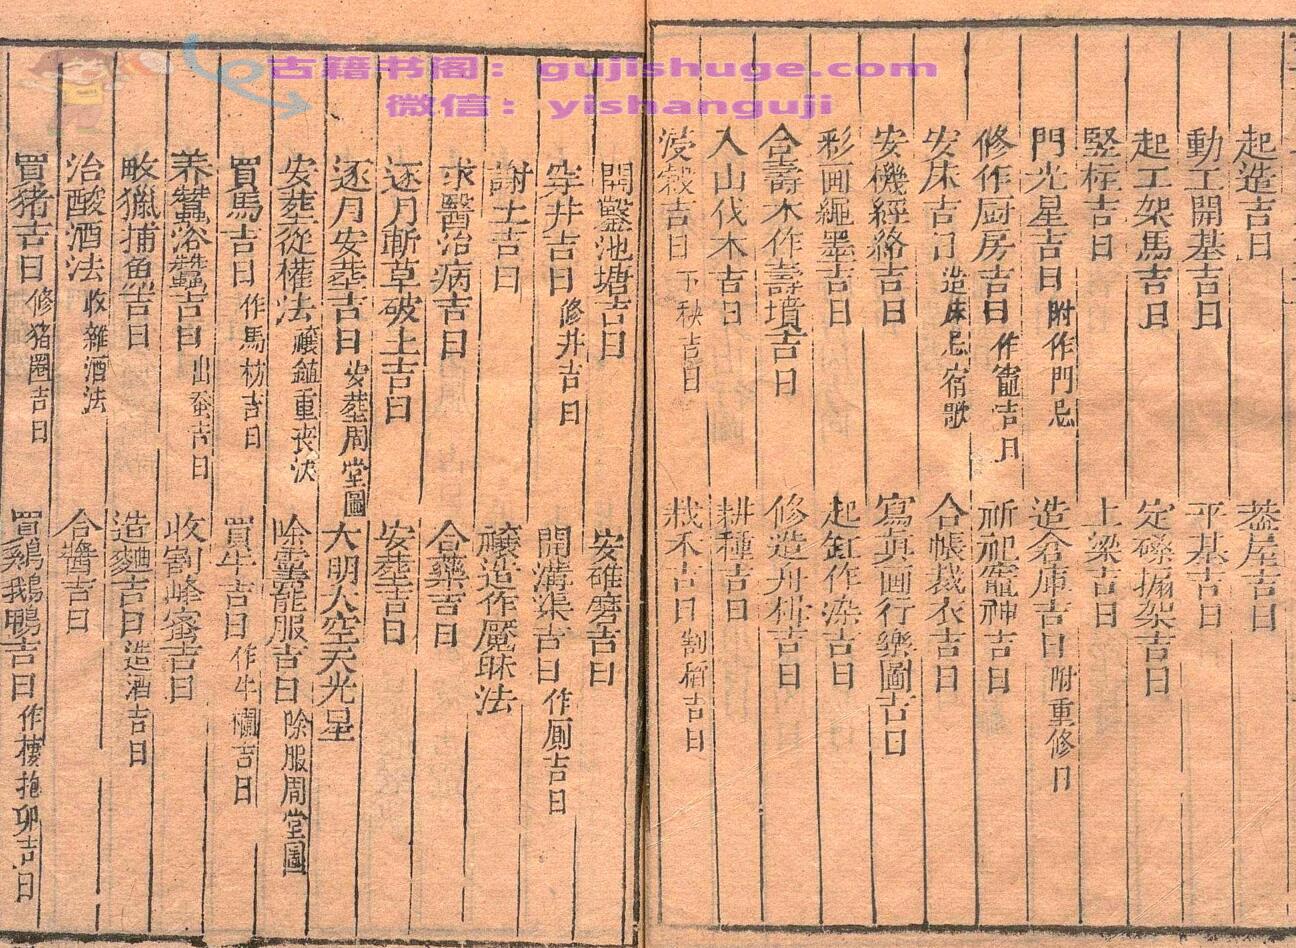 古籍书阁：gujishuge.com
微信：yishanguji
起造吉日 葢屋吉日
動工開基吉日 平基吉日
起工架馬吉日 定磉搧架吉日
竪柱吉日 上梁吉日
門光星吉日 附作門忌 造倉庫吉日 附重修日
修作厨房吉日 作竈吉日 祈祀竈神吉日
安床吉日 造床忌宿歌 合帳裁衣吉日
安機經絡吉日 寫真画行樂圖吉日
彩画繩墨吉日 起缸作染吉日
合壽木作壽墳吉日 修造舟楫吉日
入山伐木吉日 耕種吉日
浸穀吉日 下秧吉日 栽禾吉日 割稻吉日
開鑿池塘吉日 安碓磨吉日
穿井吉日 修井吉日 開溝渠吉日 作厠吉日
謝土吉日 禳造作魘昧法
求醫治病吉日 合藥吉日
逐月斬草破土吉日 安塟吉日
逐月安塟吉日 安塟周堂圖 大明大空天光星
安塟從權法 禳鎮重丧法 除靈罷服吉日 除服周堂圖
買馬吉日 作馬枋吉日 買牛吉日 作牛欄吉日
养蠶浴蠶吉日 出蚕吉日 收割蜂蜜吉日
畋獵捕魚吉日 造麯吉日 造酒吉日
治酸酒法 收雜酒法 合醬吉日
買猪吉日 修猪圈吉日 買鷄鵝鴨吉日 作棲抱卵吉日